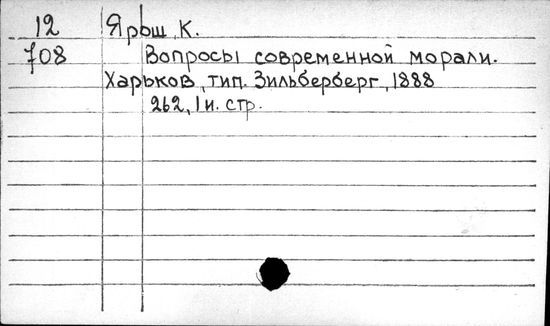 12 Ярош К.
708 Вопросы современной морали.
Харьков, тип. Зильберберг, 1888
262, 1 и. стр.